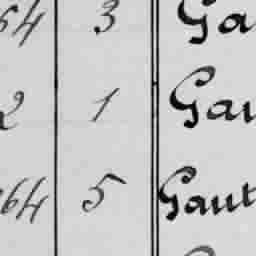 64 3 Ga
2 1 Gau
64 5 Gaut